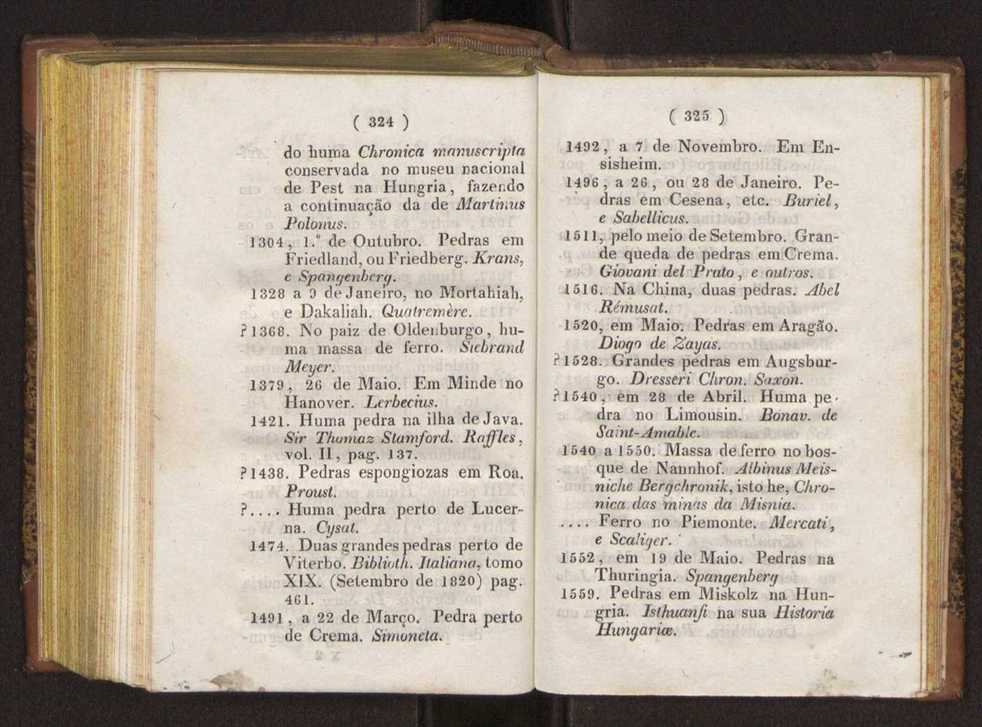 ( 324 )
do huma Chronica manuscripta
conservada no museu nacional
de Pest na Hungria, fazendo
a continuação da de Martinus
Polonus.
1304, 1.º de Outubro. Pedras em
Friedland, ou Friedberg. Krans,
e Spangenberg.
1328 a 9 de Janeiro, no Mortahiah,
e Dakaliah. Quatremère.
?1368. No paiz de Oldenburgo, hu-
ma massa de ferro. Siebrand
Meyer.
1379, 26 de Maio. Em Minde no
Hanover. Lerbecius.
1421. Huma pedra na ilha de Java.
Sir Thomaz Stamford. Raffles,
vol. II, pag. 137.
?1438. Pedras espongiozas em Roa.
Proust.
?.... Huma pedra perto de Lucer-
na. Cysat.
1474. Duas grandes pedras perto de
Viterbo. Biblioth. Italiana, tomo
XIX. (Setembro de 1820) pag.
461.
1491, a 22 de Março. Pedra perto
de Crema. Simoneta.
( 325 )
1492, a 7 de Novembro. Em En-
sisheim.
1496, a 26, ou 28 de Janeiro. Pe-
dras em Cesena, etc. Buriel,
e Sabellicus.
1511, pelo meio de Setembro. Gran-
de queda de pedras em Crema.
Giovani del Prato, e outros.
1516. Na China, duas pedras. Abel
Rémusat.
1520, em Maio. Pedras em Aragão.
Diogo de Zayas.
?1528. Grandes pedras em Augsbur-
go. Dresseri Chron. Saxon.
?1540, em 28 de Abril. Huma pe-
dra no Limousin. Bonav. de
Saint-Amable.
1540 a 1550. Massa de ferro no bos-
que de Nannhof. Albinus Meis-
niche Bergchronik, isto he, Chro-
nica das minas da Misnia.
.... Ferro no Piemonte. Mercati,
e Scaliger.
1552, em 19 de Maio. Pedras na
Thuringia. Spangenberg
1559. Pedras em Miskolz na Hun-
gria. Isthuanfi na sua Historia
Hungariæ.